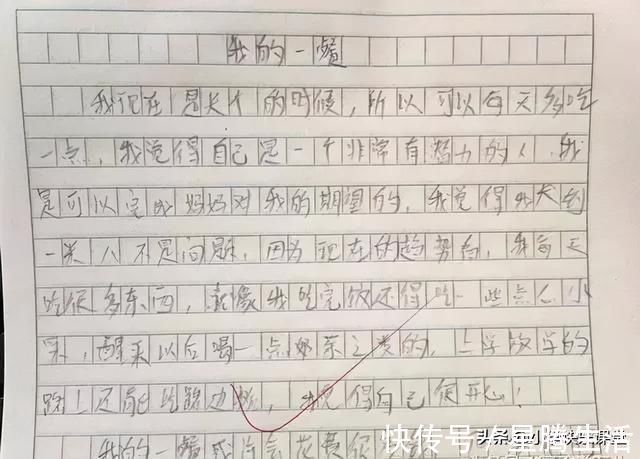 我的一餐
我现在是长个的时候，所以可以每天多吃
一点，我觉得自己是一个非常有潜力的人，我
是可以完成妈妈对我的期望的，我觉得我长到
一米八不是问题，因为现在的趋势看，我每天
吃很多东西，就像我吃完饭还得吃一些点心水
果，醒来以后喝一点奶茶之类的，上学放学的
路上还能吃路边摊，我觉得自己很开心！
我的一餐或许会花费很
快传号/星腾生活
头条